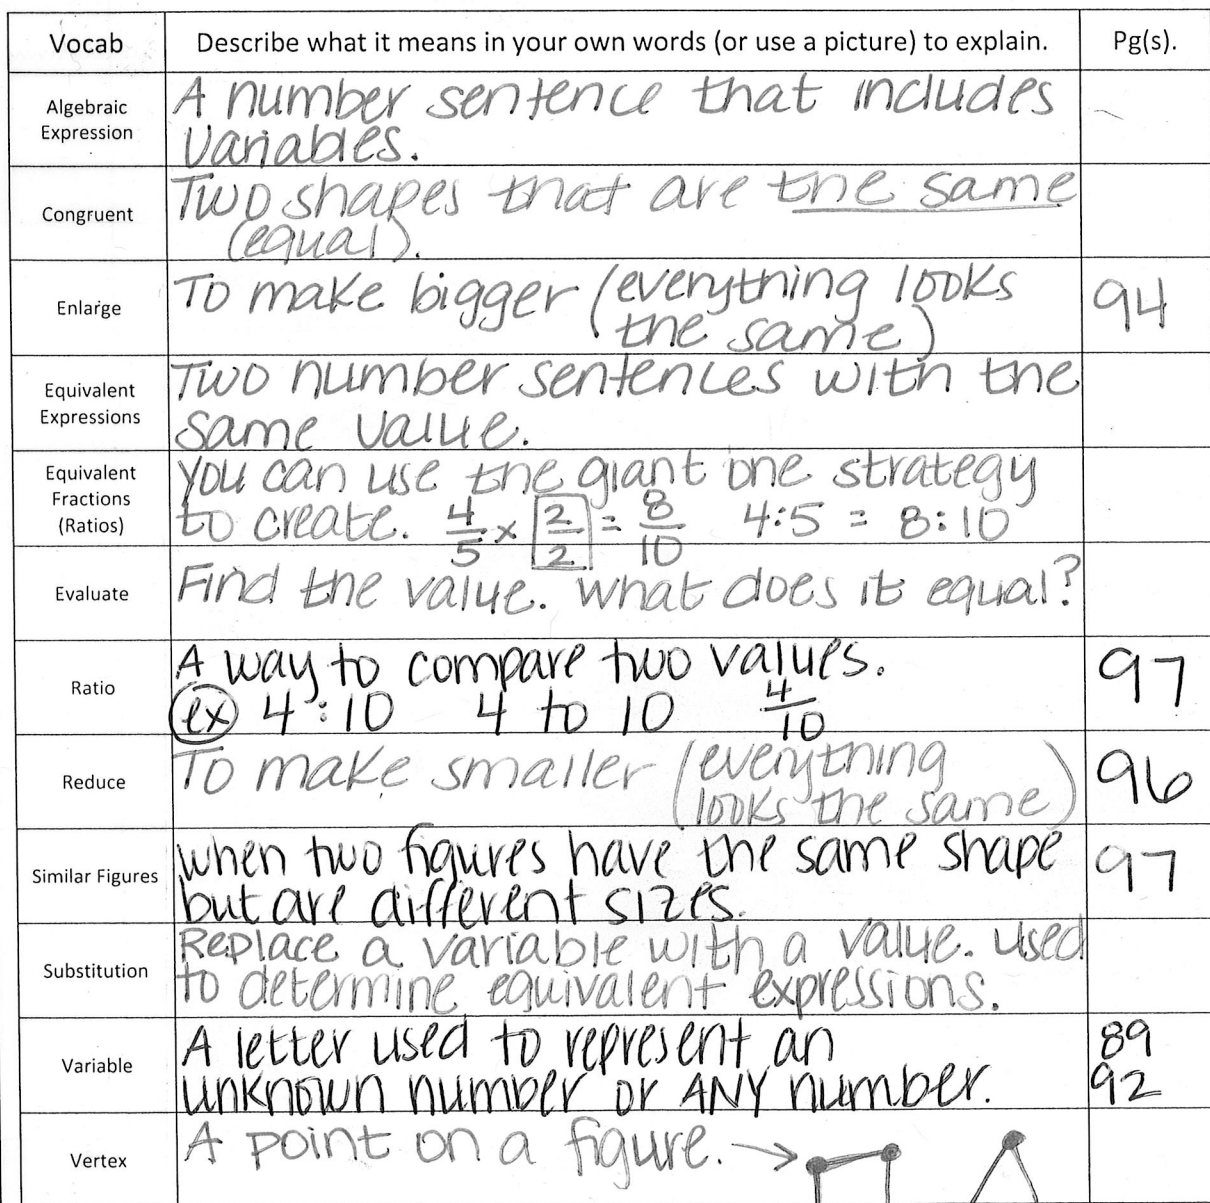 Vocab
Describe what it means in your own words (or use a picture) to explain.
Pg(s).
Algebraic
Expression
A number sentence that includes
variables.
Congruent
Two shapes that are the same
(equal).
Enlarge
To make bigger (everything looks
the same)
94
Equivalent
Expressions
Two number sentences with the
same value.
Equivalent
Fractions
(Ratios)
You can use the giant one strategy
to create. 4/5 x 2/2 = 8/10 4:5 = 8:10
Evaluate
Find the value. What does it equal?
Ratio
A way to compare two values.
ex 4:10 4 to 10 4/10
97
Reduce
To make smaller (everything
looks the same)
96
Similar Figures
when two figures have the same shape
but are different sizes.
97
Substitution
Replace a variable with a value. Used
to determine equivalent expressions.
Variable
A letter used to represent an
unknown number or ANY number.
89
92
Vertex
A point on a figure. →